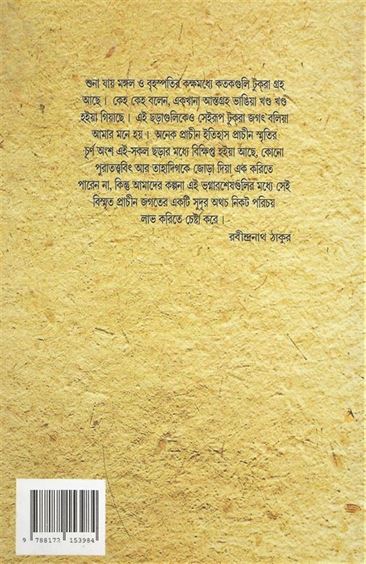 শুনা যায় মঙ্গল ও বৃহস্পতির কক্ষমধ্যে কতকগুলি টুক্‌রা গ্রহ
আছে। কেহ কেহ বলেন, একখানা আস্তগ্রহ ভাঙিয়া খণ্ড খণ্ড
হইয়া গিয়াছে। এই ছড়াগুলিকেও সেইরূপ টুক্‌রা জগৎ বলিয়া
আমার মনে হয়। অনেক প্রাচীন ইতিহাস প্রাচীন স্মৃতির
চূর্ণ অংশ এই-সকল ছড়ার মধ্যে বিক্ষিপ্ত হইয়া আছে, কোনো
পুরাতত্ত্ববিৎ আর তাহাদিগকে জোড়া দিয়া এক করিতে
পারেন না, কিন্তু আমাদের কল্পনা এই ভগ্নাবশেষগুলির মধ্যে সেই
বিস্মৃত প্রাচীন জগতের একটি সুদূর অথচ নিকট পরিচয়
লাভ করিতে চেষ্টা করে।
রবীন্দ্রনাথ ঠাকুর
9 788173 153984